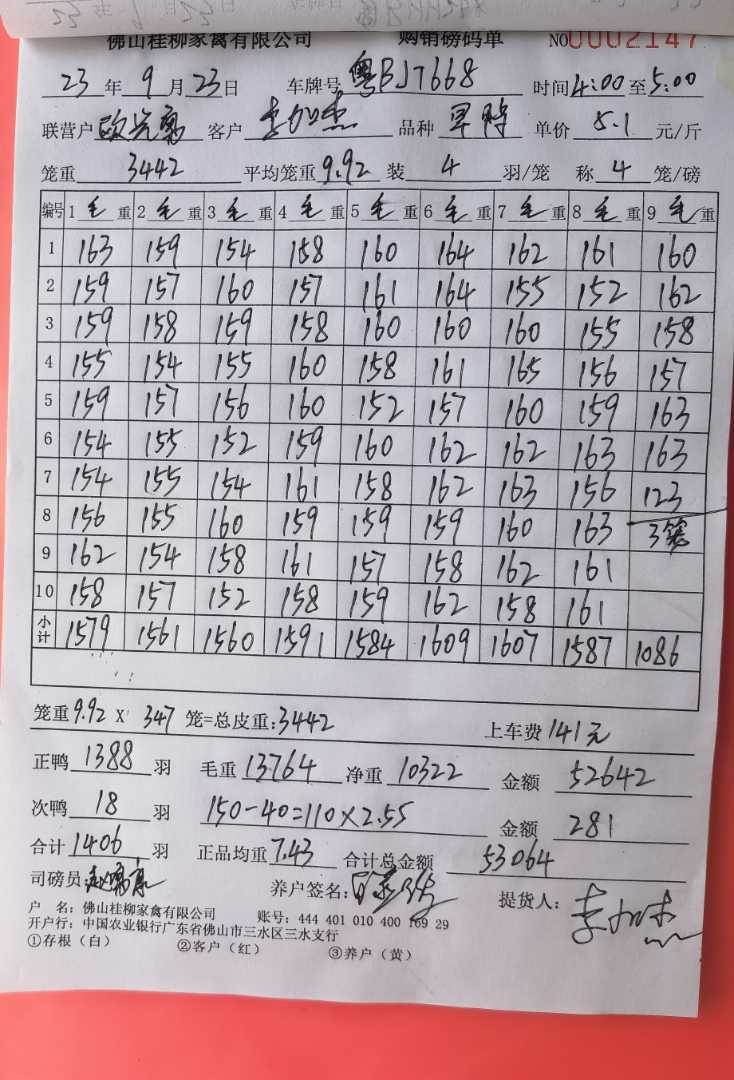 佛山桂柳家禽有限公司 购销磅码单 NO0002147
23年9月23日 车牌号粤BJ7668 时间4:00至5:00
联营户 客户李加杰 品种 单价5.1元/斤
笼重3442 平均笼重9.92 装4羽/笼 称4笼/磅
编号 1毛重 2毛重 3毛重 4毛重 5毛重 6毛重 7毛重 8毛重 9毛重
1 163 159 154 158 160 164 162 161 160
2 159 157 160 157 161 164 155 152 162
3 159 158 159 158 160 160 160 155 158
4 155 154 155 160 158 161 165 156 157
5 159 157 156 160 152 157 160 159 163
6 154 155 152 159 160 162 162 163 163
7 154 155 154 161 158 162 163 156 123
8 156 155 160 159 159 159 160 163 3笼
9 162 154 158 161 157 158 162 161
10 158 157 152 158 159 162 158 161
小计 1579 1561 1560 1591 1584 1609 1607 1587 1086
笼重9.92X347笼=总皮重:3442 上车费141元
正鸭1388羽 毛重13764净重10322 金额52642
次鸭18羽 150-40=110×2.55 金额281
合计1406羽 正品均重7.43 合计总金额53064
司磅员: 养户签名: 提货人:李加杰
户 名:佛山桂柳家禽有限公司 账号:444 401 010 400 169 29
开户行:中国农业银行广东省佛山市三水区三水支行
①存根(白) ②客户(红) ③养户(黄)